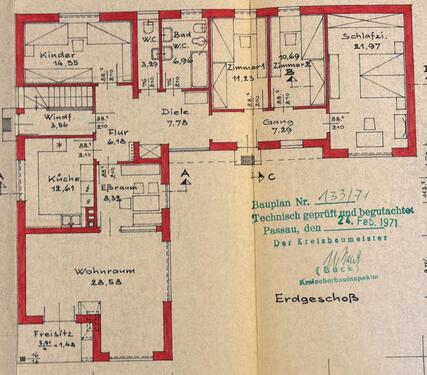 Kinder
14,55
W.C.
3,29
Bad
W.C.
6,96
Zimmer 1
11,23
10,69
Zimmer 2
B
Schlafzi.
21,97
Windf.
3,56
Diele
7,78
Flur
6,18
Gang
7,29
Küche
12,61
Eßraum
8,32
A
C
Wohnraum
28,58
Freisitz
= 1,48
Bauplan Nr. 133/71
Technisch geprüft und begutachtet
Passau, den 24. Feb. 1971
Der Kreisbaumeister
(Bäck)
Kreisoberbauinspektor
Erdgeschoß